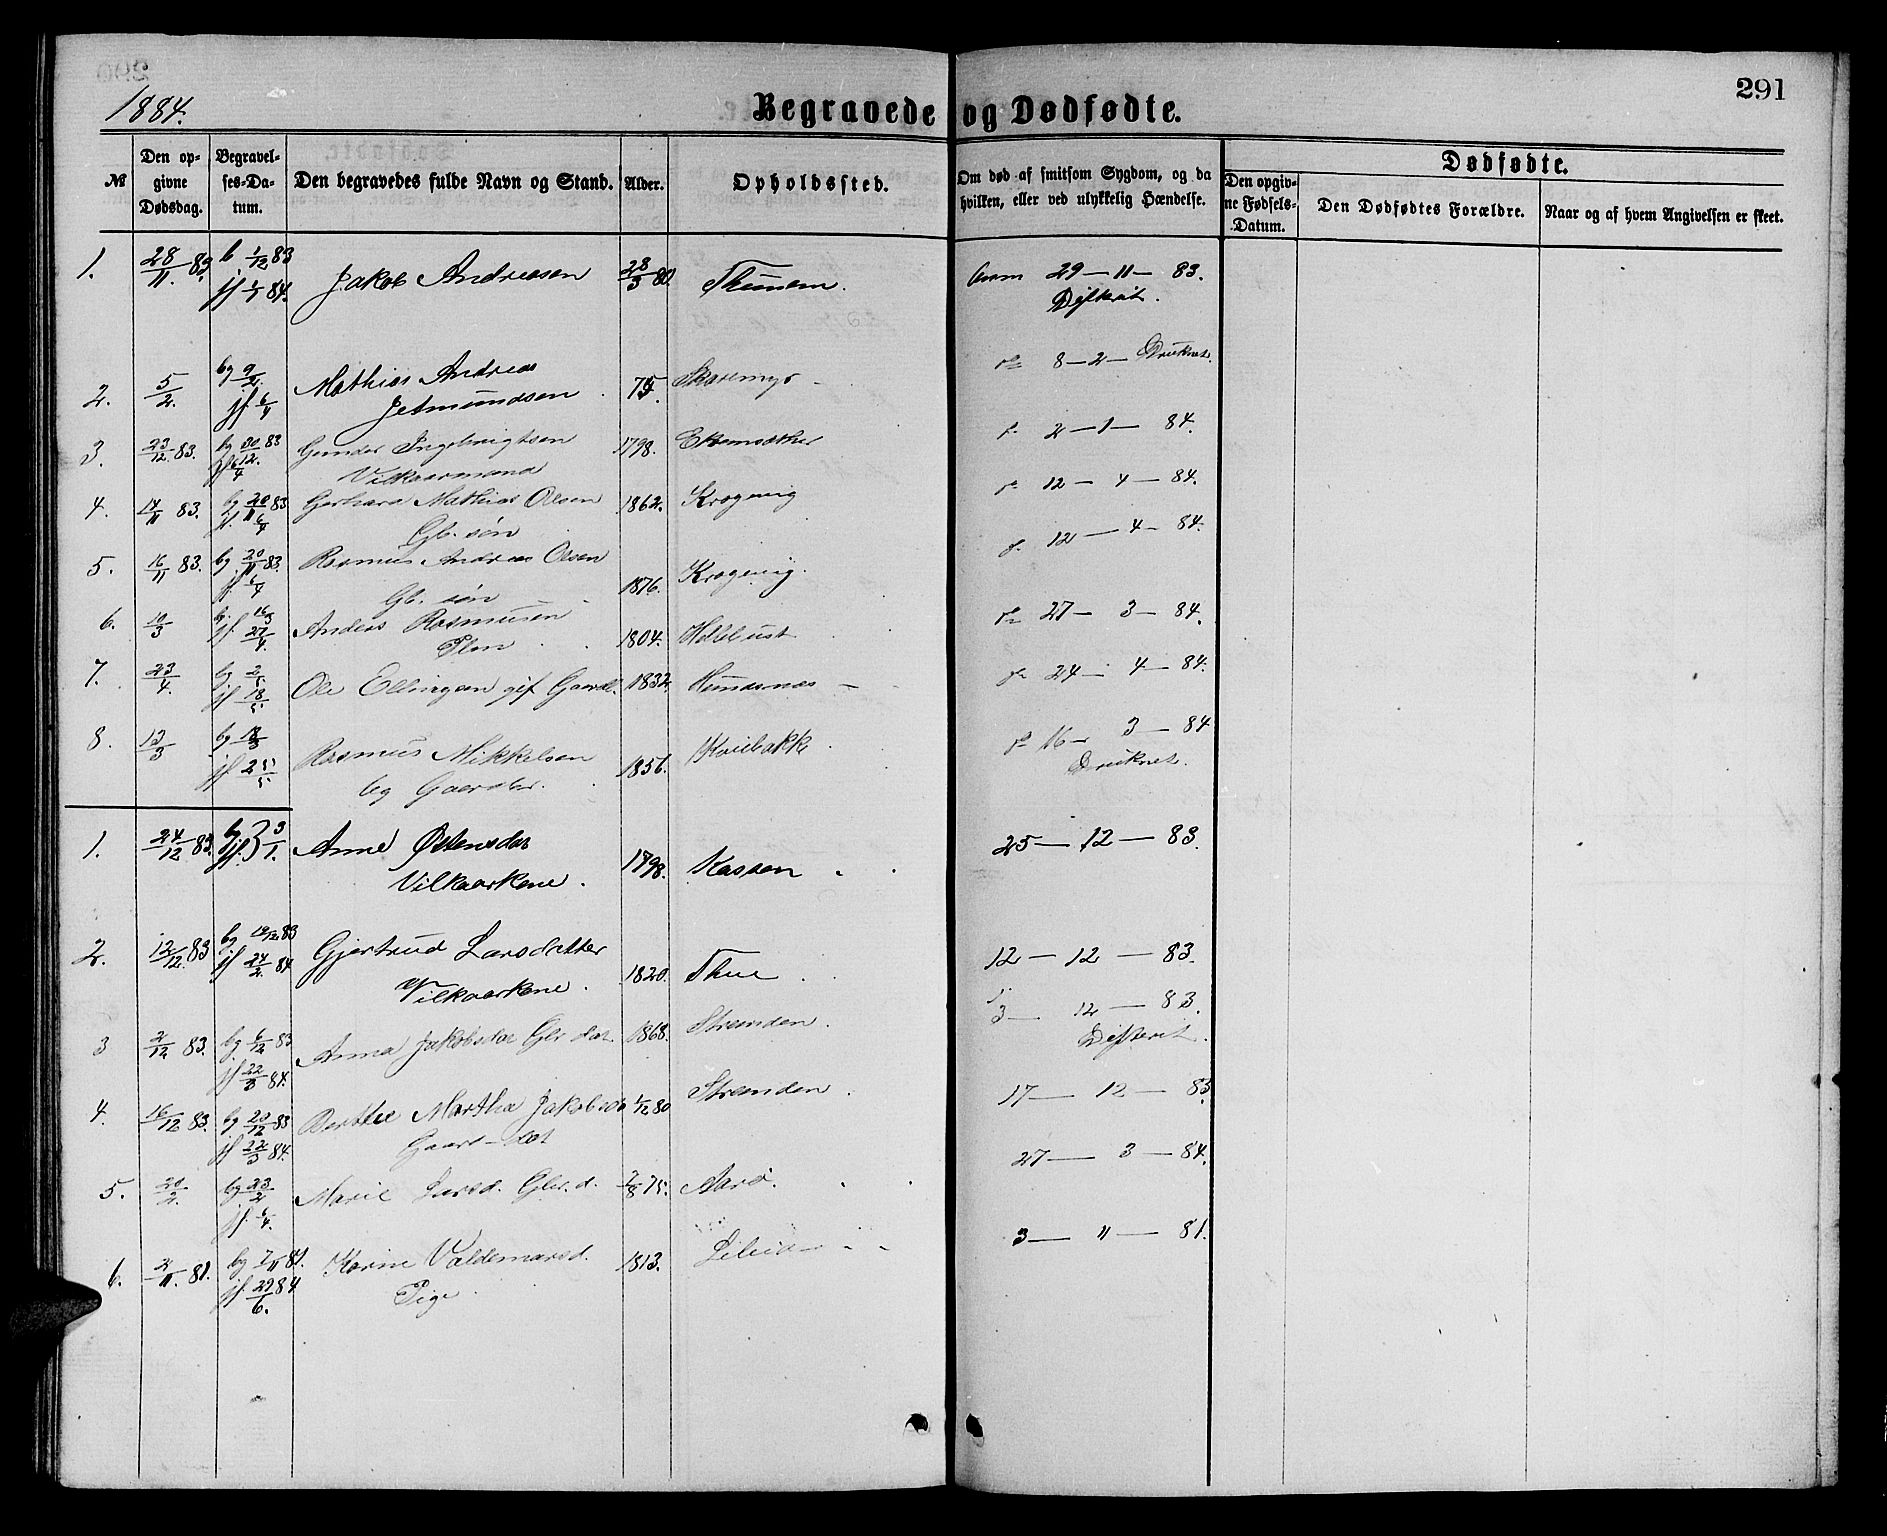 291
1884.
Begravede og Dødfødte.
№
Den opgivne Dødsdag.
Begravelses-Datum.
Den begravedes fulde Navn og Stand.
Alder.
Opholdssted.
Om død af smitsom Sygdom, og da hvilken, eller ved ulykkelig Hændelse.
Dødfødte.
Den opgivne Fødsels-Datum.
Den Dødfødtes Forældre.
Naar og af hvem Angivelsen er skeet.
1. 28/11 83. b 1/12 83 Jakob Andreasen 28/3 80. 29 — 11 — 83.
jf 1/1 84.
2. 5/2. bg 9/2. Mathias Andreas 75. Skaremyr 8 — 2 — Druknet.
jf. 6/4 Jetmundsen
3. 23/12 83. bg 30/12 83 Gunder Ingebrigtsen 1798. 2 — 1 — 84.
jf 6/4 Vilkaarmand
4. 14/11 83. bg 20/11 83 Gerhard Mathias Olsen 1862. Krogevig 12 — 4 — 84.
jf. 6/4 Gb. søn
5. 16/11 83. bg 20/11 83. Rasmus Andreas Olsen 1876. Krogevig. 12 — 4 — 84.
jf. 6/4 Gb. søn
6. 10/3 b. 16/3 Anders Rasmusen 1804. 27 — 3 — 84.
jf. 27/4.
7. 23/4. bg 2/5 Ole Ellingsen gift Gaardb. 1832. Hundsnes 24 — 4 — 84.
jf 18/5
8. 12/3 bg 18/3 Rasmus Mikkelsen 1856. 16 — 3 — 84
jf 25/5 Gaardbr. Druknet.
1. 24/12 83. bg jf. 3/1. Anne Østensdat 1798. Kassen 25 — 12 — 83.
Vilkaarkone.
2. 12/12 83 bg 19/12 83 Gjertrud Larsdatter 1820. Thue 12 — 12 — 83.
jf 24/2 84 Vilkaarkone.
3 2/12 83. bg 6/12 83 Anna Jakobsdat Gbr. dat. 1868. Stranden. 3 — 12 — 83.
jf 22/3 84. Difterit.
4. 16/12 83. bg 20/12 83 Berthe Martha Jakobsd 1/12 80 Stranden. 17 — 12 — 83
jf 22/3 84. Gaard-dat
5. 20/2. bg 23/2 Marie Larsd. Gbr. d. 7/8 75. Aarø. 27 — 3 — 84.
jf. 6/4.
6. 2/11. 81. bg 7/11 81. Karine Valdemarsd. 1813. 3 — 11 — 81.
jf. 29/6. 84 Pige